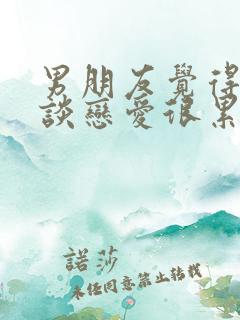 男朋友覺得
談戀愛很累
諾莎
未經同意禁止轉載